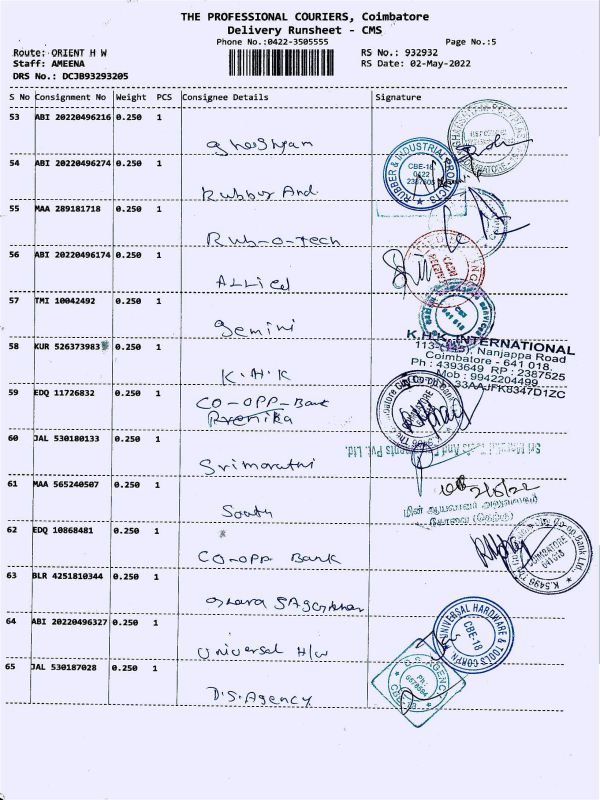 THE PROFESSIONAL COURIERS, Coimbatore
Delivery Runsheet - CMS
Phone No.:0422-3505555
Page No.:5
Route: ORIENT H W
RS No.: 932932
Staff: AMEENA
RS Date: 02-May-2022
DRS No.: DCJB93293205
S No Consignment No Weight PCS Consignee Details Signature
53 ABI 20220496216 0.250 1
54 ABI 20220496274 0.250 1
RUBBER & INDUSTRIAL PRODUCTS
CBE-18
0422
Rubber And
55 MAA 289181718 0.250 1
Rub-o-Tech
56 ABI 20220496174 0.250 1
ALLied
57 TMI 10042492 0.250 1
Gemini
641 018
58 KUR 526373983 0.250 1
K.H.K. INTERNATIONAL
Nanjappa Road
Coimbatore - 641 018.
Ph : 4393649 RP : 2387525
Mob : 9942204499
33AAJFK8347D1ZC
K.H.K
59 EDQ 11726832 0.250 1
CO-OPP-Bank
COIMBATORE
60 JAL 530180133 0.250 1
Pvt. Ltd.
Srimarathi
61 MAA 565240507 0.250 1
2/5/22
South
62 EDQ 10868481 0.250 1
CO-OPP Bank
Co-op Bank Ltd.
COIMBATORE
641 018
K.5495
63 BLR 4251810344 0.250 1
64 ABI 20220496327 0.250 1
UNIVERSAL HARDWARE & TOOLS CORPN
CBE-18
Universal H/w
65 JAL 530187028 0.250 1
D.S. AGENCY
Ph :
D.S. Agency